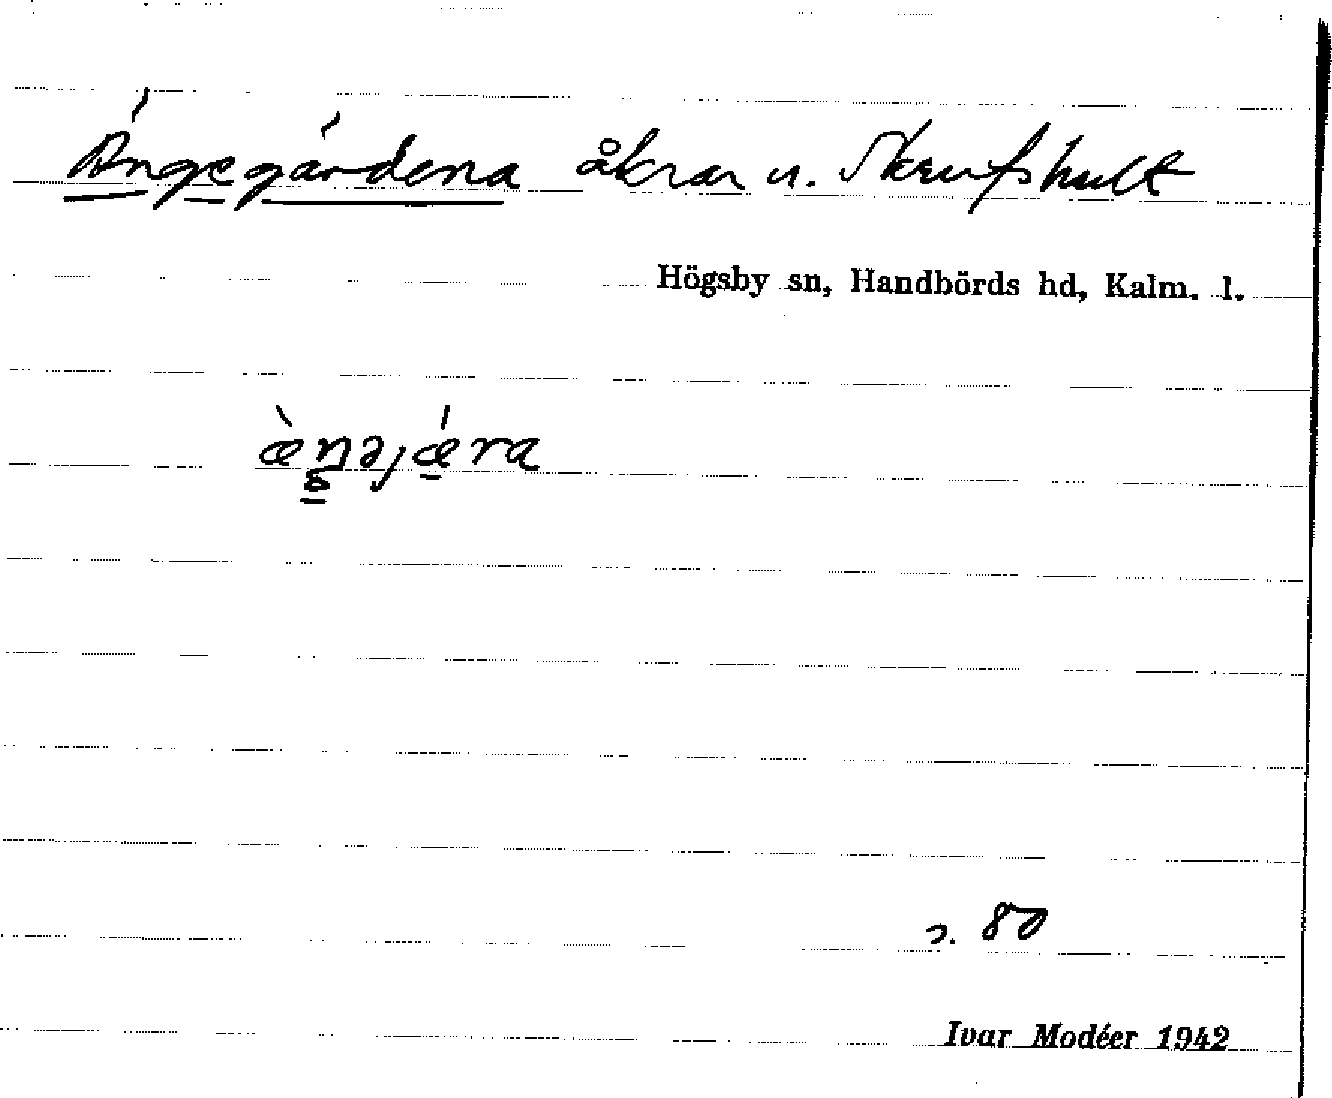 Ängegärdena åkrar u. Skrufshult
Högsby sn, Handbörds hd, Kalm. l.
s. 80
Ivar Modéer 1942